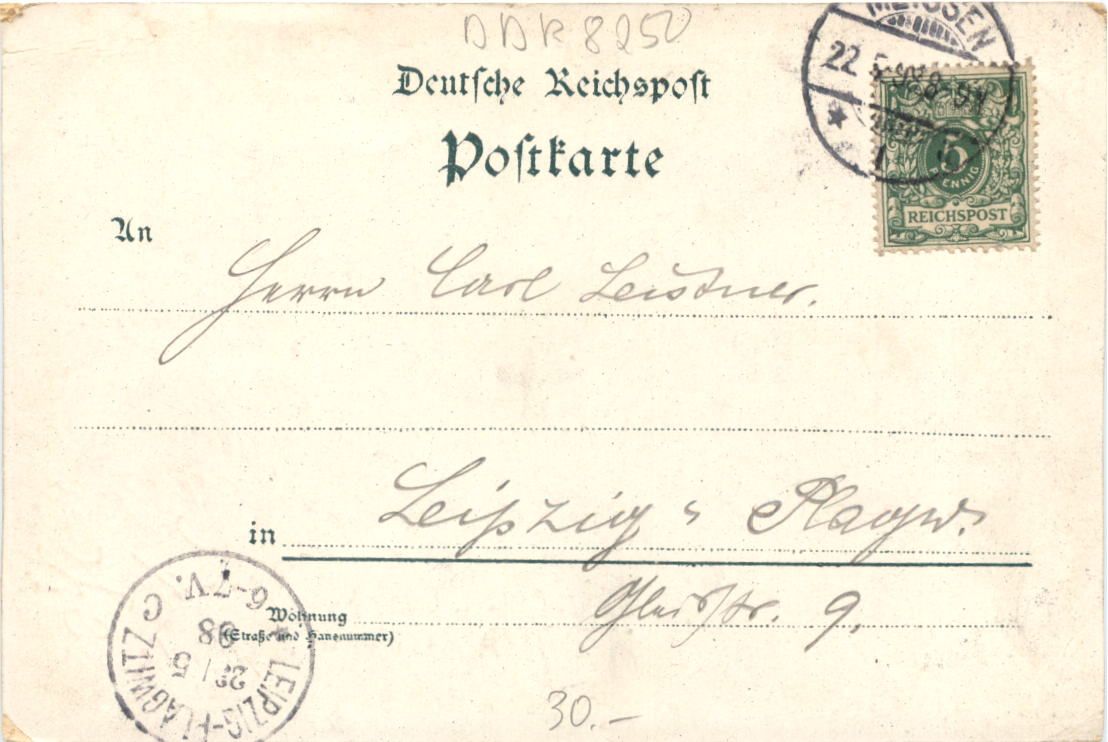 DDR 8250
Deutsche Reichspost
Postkarte
MEISSEN
22 5 98 8-9V
1
5
PFENNIG
REICHSPOST
An
Herrn Carl Leistner.
in Leipzig - Plagw.
Wohnung
(Straße und Hausnummer)
Gleisstr. 9.
LEIPZIG-PLAGWITZ C
5
98
6-7V.
30.-